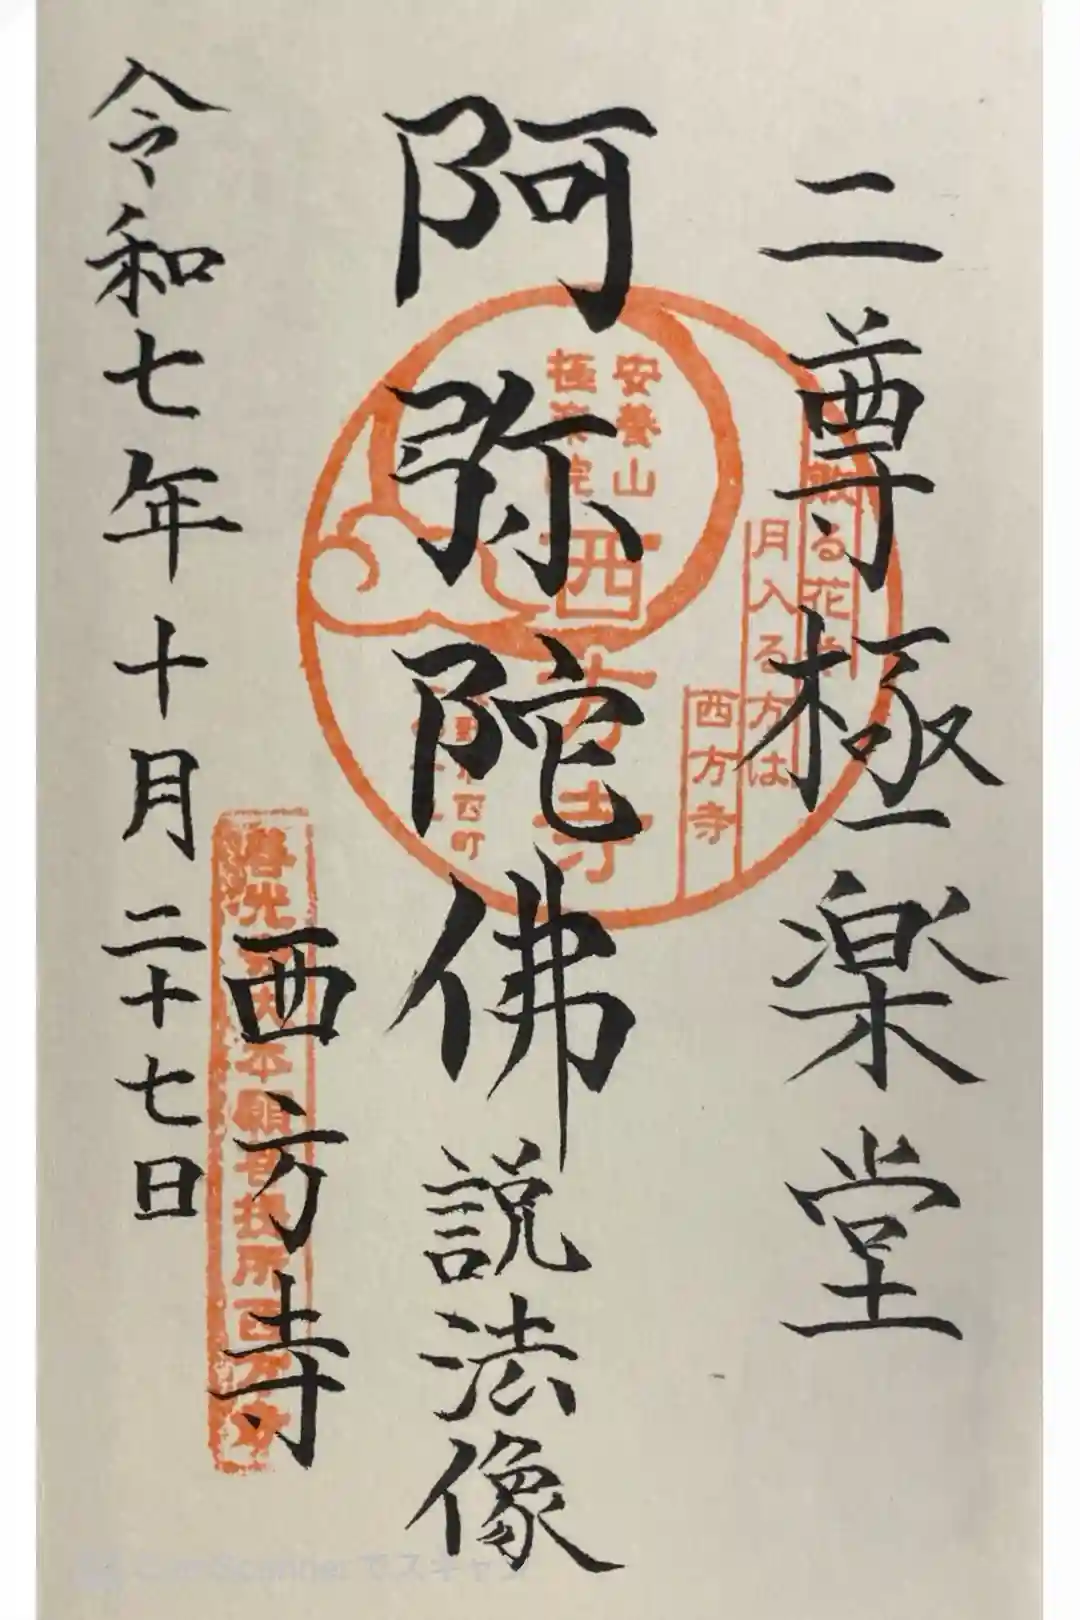 二尊極楽堂
阿弥陀佛 説法像
西方寺
令和七年十月二十七日
散る花
月入る方は
西方寺
安養山
極楽院
西方寺
善光寺大本願 投所西方寺
CamScannerでスキャン